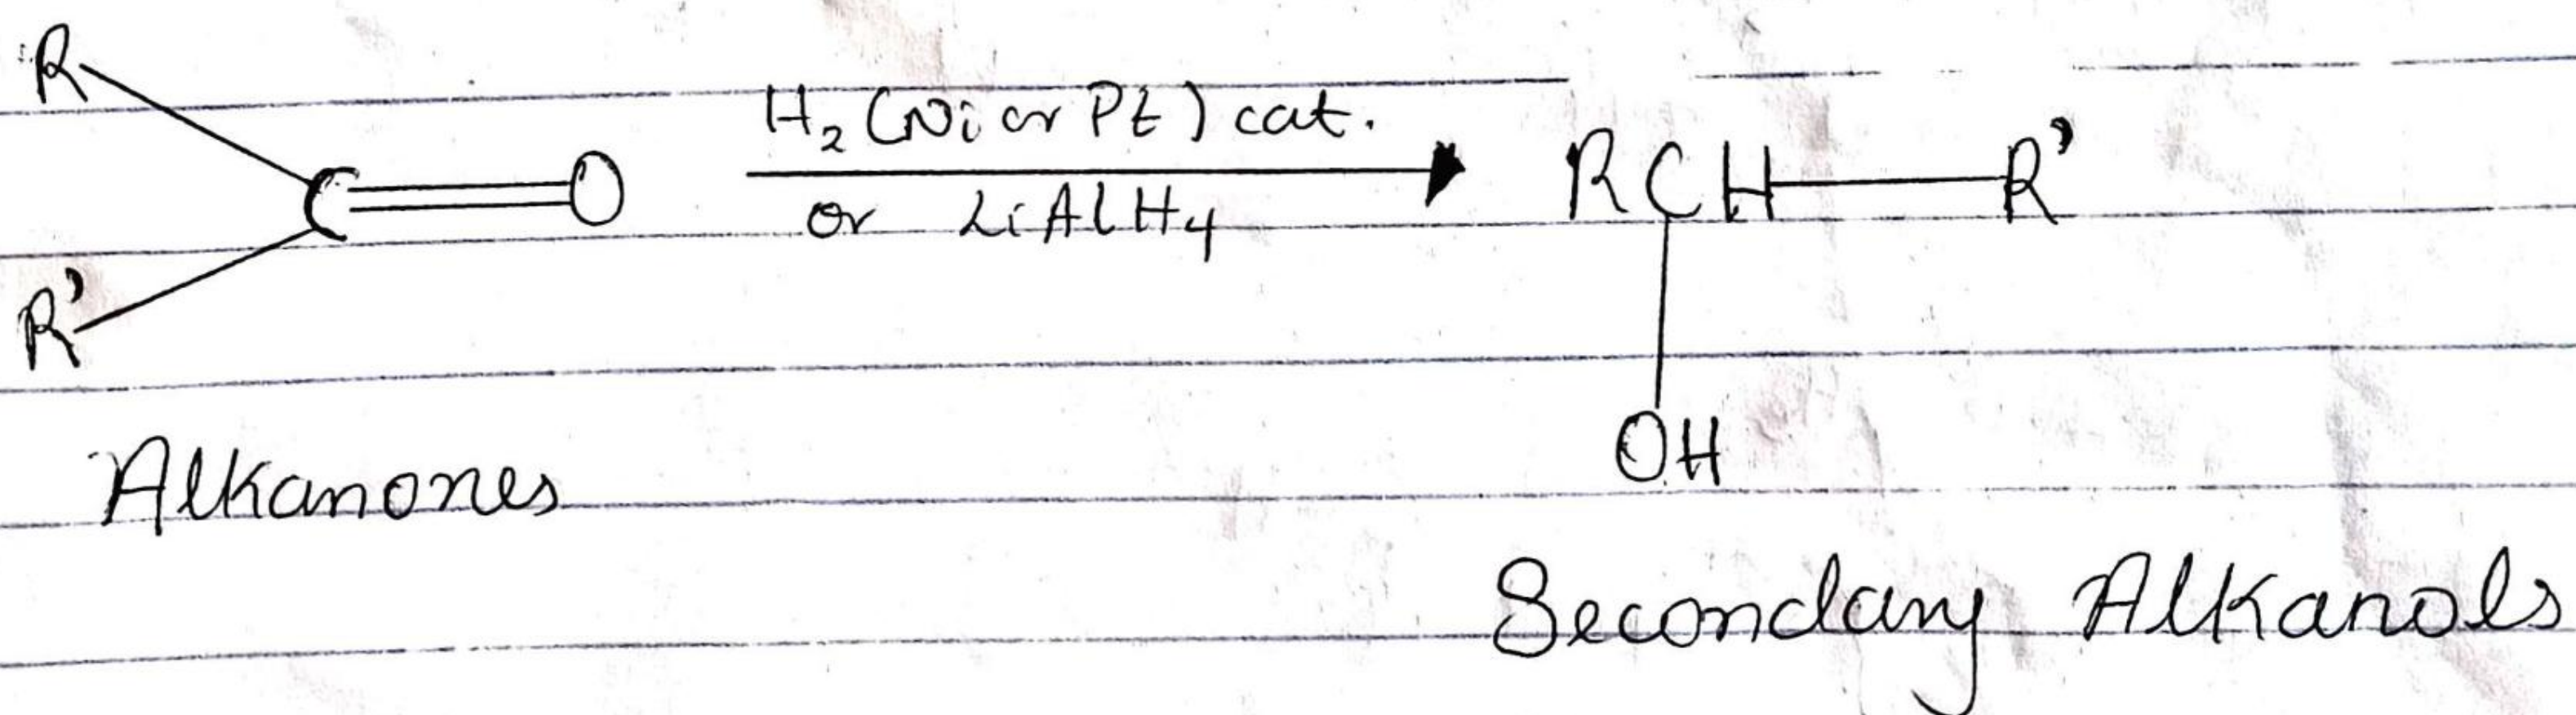 R
R'
C=O
H₂ (Ni or Pt) cat.
or LiAlH₄
RCH—R'
OH
Alkanones
Secondary Alkanols